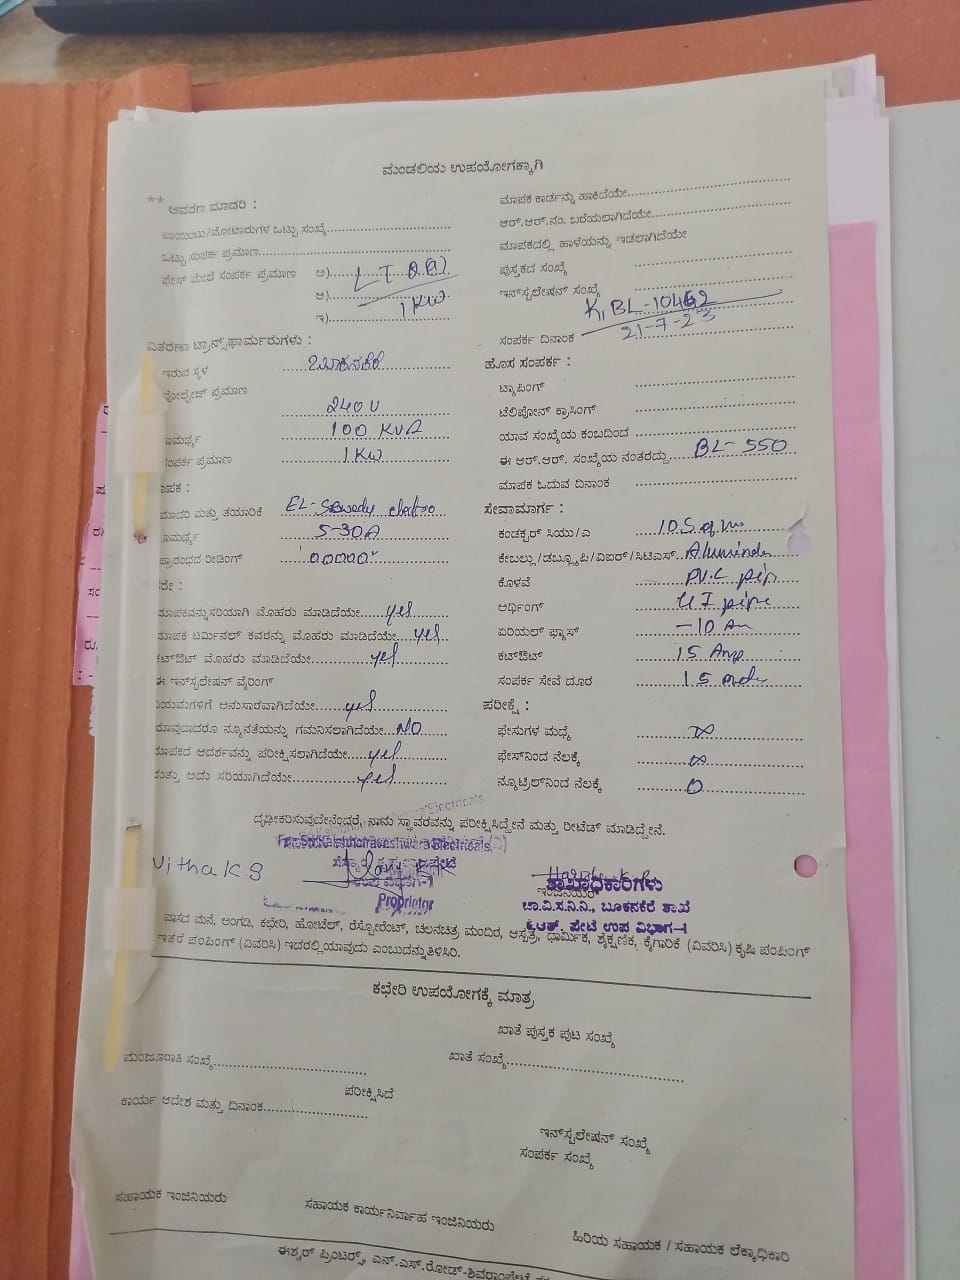 ಮಂಡಲಿಯ ಉಪಯೋಗಕ್ಕಾಗಿ
** ಆವರಣ ಮಾದರಿ :
ಪಾಯಿಂಟು/ಮೋಟಾರುಗಳ ಒಟ್ಟು ಸಂಖ್ಯೆ
ಒಟ್ಟು ಸಂಪರ್ಕ ಪ್ರಮಾಣ
ಫೇಸ್ ಮೇಲೆ ಸಂಪರ್ಕ ಪ್ರಮಾಣ ಅ)
ಆ)
ಇ) 1 KW
ವಿತರಣಾ ಟ್ರಾನ್ಸ್‌ಫಾರ್ಮರುಗಳು :
ಇರುವ ಸ್ಥಳ ಬೂಕನಕೆರೆ
ವೋಲ್ಟೇಜ್ ಪ್ರಮಾಣ 240 V
ಸಾಮರ್ಥ್ಯ 100 KVA
ಸಂಪರ್ಕ ಪ್ರಮಾಣ 1 KW
ಮಾಪಕ :
ಮಾದರಿ ಮತ್ತು ತಯಾರಿಕೆ EL-Sewedy electro
ಸಾಮರ್ಥ್ಯ 5-30A
ಪ್ರಾರಂಭದ ರೀಡಿಂಗ್
ಮಾಪಕವನ್ನು ಸರಿಯಾಗಿ ಮೊಹರು ಮಾಡಿದೆಯೇ yes
ಮಾಪಕ ಟರ್ಮಿನಲ್ ಕವರನ್ನು ಮೊಹರು ಮಾಡಿದೆಯೇ yes
ಕಟ್‌ಔಟ್ ಮೊಹರು ಮಾಡಿದೆಯೇ yes
ಈ ಇನ್‌ಸ್ಟಲೇಷನ್ ವೈರಿಂಗ್
ನಿಯಮಗಳಿಗೆ ಅನುಸಾರವಾಗಿದೆಯೇ yes
ಯಾವುದಾದರೂ ನ್ಯೂನತೆಯನ್ನು ಗಮನಿಸಲಾಗಿದೆಯೇ NO
ಮಾಪಕದ ಆದರ್ಶವನ್ನು ಪರೀಕ್ಷಿಸಲಾಗಿದೆಯೇ yes
ಮತ್ತು ಅದು ಸರಿಯಾಗಿದೆಯೇ yes
ಮಾಪಕ ಕಾರ್ಡನ್ನು ಹಾಕಿದೆಯೇ
ಆರ್.ಆರ್.ನಂ. ಬರೆಯಲಾಗಿದೆಯೇ
ಮಾಪಕದಲ್ಲಿ ಹಾಳೆಯನ್ನು ಇಡಲಾಗಿದೆಯೇ
ಪುಸ್ತಕದ ಸಂಖ್ಯೆ
ಇನ್‌ಸ್ಟಲೇಷನ್ ಸಂಖ್ಯೆ
ಸಂಪರ್ಕ ದಿನಾಂಕ 21-7-23
ಹೊಸ ಸಂಪರ್ಕ :
ಟ್ಯಾಪಿಂಗ್
ಟೆಲಿಫೋನ್ ಕ್ರಾಸಿಂಗ್
ಯಾವ ಸಂಖ್ಯೆಯ ಕಂಬದಿಂದ
ಈ ಆರ್.ಆರ್. ಸಂಖ್ಯೆಯ ನಂತರದ್ದು BL-550
ಮಾಪಕ ಓದುವ ದಿನಾಂಕ
ಸೇವಾಮಾರ್ಗ :
ಕಂಡಕ್ಟರ್ ಸಿಯು/ಎ 10 Sq.mm
ಕೇಬಲ್ಲು/ಡಬ್ಲ್ಯೂಪಿ/ವಿಐಆರ್/ಸಿಟಿಎಸ್
ಕೊಳವೆ PV.C pip
ಅರ್ಥಿಂಗ್ G I pipe
ಏರಿಯಲ್ ಫ್ಯೂಸ್
ಕಟ್‌ಔಟ್ 15 Amp
ಸಂಪರ್ಕ ಸೇವೆ ದೂರ
ಪರೀಕ್ಷೆ :
ಫೇಸುಗಳ ಮಧ್ಯೆ ∞
ಫೇಸ್‌ನಿಂದ ನೆಲಕ್ಕೆ ∞
ನ್ಯೂಟ್ರಲ್‌ನಿಂದ ನೆಲಕ್ಕೆ 0
ದೃಢೀಕರಿಸುವುದೇನೆಂದರೆ, ನಾನು ಸ್ಥಾವರವನ್ನು ಪರೀಕ್ಷಿಸಿದ್ದೇನೆ ಮತ್ತು ರೀಟೆಡ್ ಮಾಡಿದ್ದೇನೆ.
Electricals
Proprietor
ಶಾಖಾಧಿಕಾರಿಗಳು
ಚಾ.ವಿ.ಸ.ನಿ.ನಿ., ಬೂಕನಕೆರೆ ಶಾಖೆ
ಕೆ.ಆರ್. ಪೇಟೆ ಉಪ ವಿಭಾಗ-1
ವಾಸದ ಮನೆ, ಅಂಗಡಿ, ಕಛೇರಿ, ಹೋಟೆಲ್, ರೆಸ್ಟೋರೆಂಟ್, ಚಲನಚಿತ್ರ ಮಂದಿರ, ಆಸ್ಪತ್ರೆ, ಧಾರ್ಮಿಕ, ಶೈಕ್ಷಣಿಕ, ಕೈಗಾರಿಕೆ (ವಿವರಿಸಿ) ಕೃಷಿ ಪಂಪಿಂಗ್
ಇತರೆ ಪಂಪಿಂಗ್ (ವಿವರಿಸಿ) ಇದರಲ್ಲಿ ಯಾವುದು ಎಂಬುದನ್ನು ತಿಳಿಸಿರಿ.
ಕಛೇರಿ ಉಪಯೋಗಕ್ಕೆ ಮಾತ್ರ
ಖಾತೆ ಪುಸ್ತಕ ಪುಟ ಸಂಖ್ಯೆ
ಮಂಜೂರಾತಿ ಸಂಖ್ಯೆ
ಖಾತೆ ಸಂಖ್ಯೆ
ಪರೀಕ್ಷಿಸಿದೆ
ಕಾರ್ಯ ಆದೇಶ ಮತ್ತು ದಿನಾಂಕ
ಇನ್‌ಸ್ಟಲೇಷನ್ ಸಂಖ್ಯೆ
ಸಂಪರ್ಕ ಸಂಖ್ಯೆ
ಸಹಾಯಕ ಇಂಜಿನಿಯರು
ಸಹಾಯಕ ಕಾರ್ಯನಿರ್ವಾಹ ಇಂಜಿನಿಯರು
ಹಿರಿಯ ಸಹಾಯಕ / ಸಹಾಯಕ ಲೆಕ್ಕಾಧಿಕಾರಿ
ಈಶ್ವರ್ ಪ್ರಿಂಟರ್ಸ್, ಎನ್.ಎಸ್.ರೋಡ್-ಶಿವರಾಂಪೇಟೆ